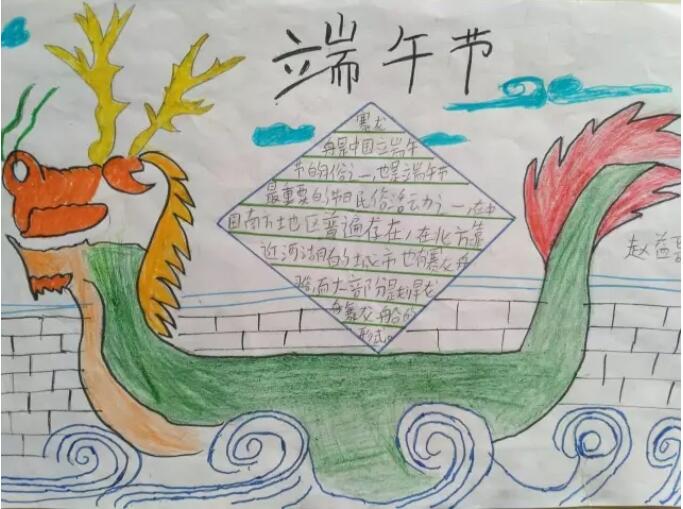 端午节
赛龙
舟是中国端午
节的习俗之一,也是端午节
最重要的节日民俗活动之一,在中
国南方地区普遍存在,在北方靠
近河湖的城市也有赛龙舟
而大部分是划旱龙
舟舞龙船的
形式。
赵益